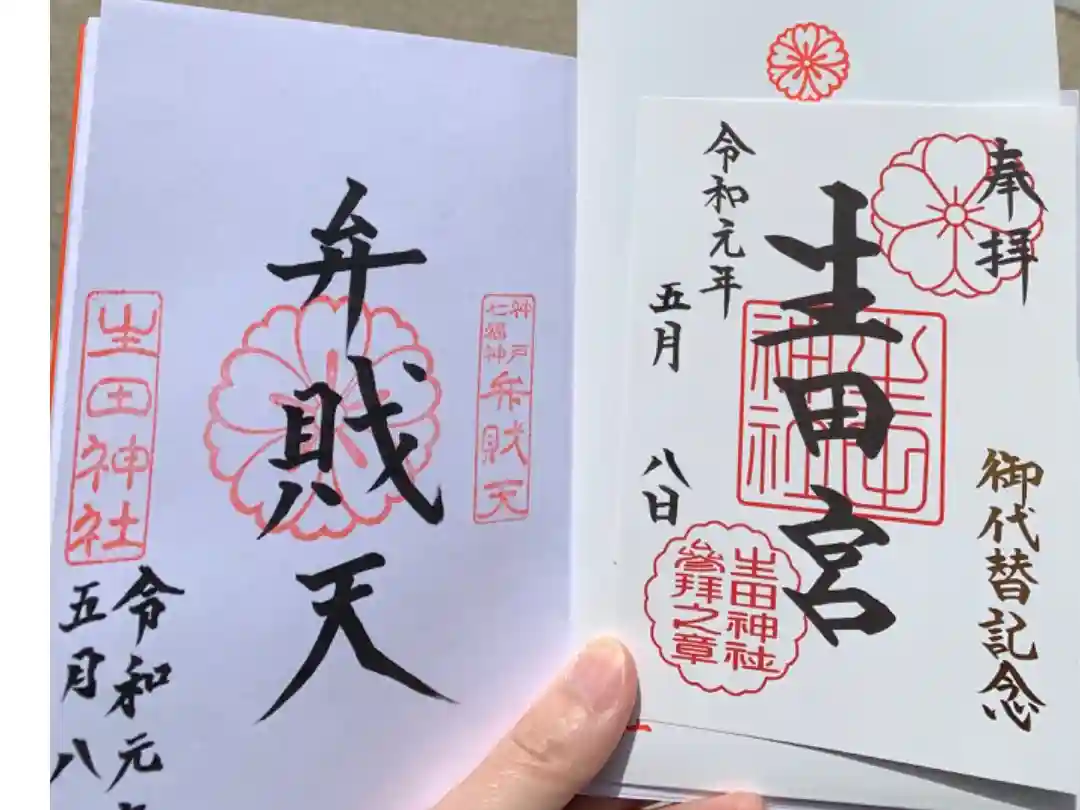 奉拝
御代替記念
生田宮
生田
神社
生田神社
參拜之章
令和元年
五月八日
神戸
七福神
弁財天
弁財天
生田神社
令和元年
五月八